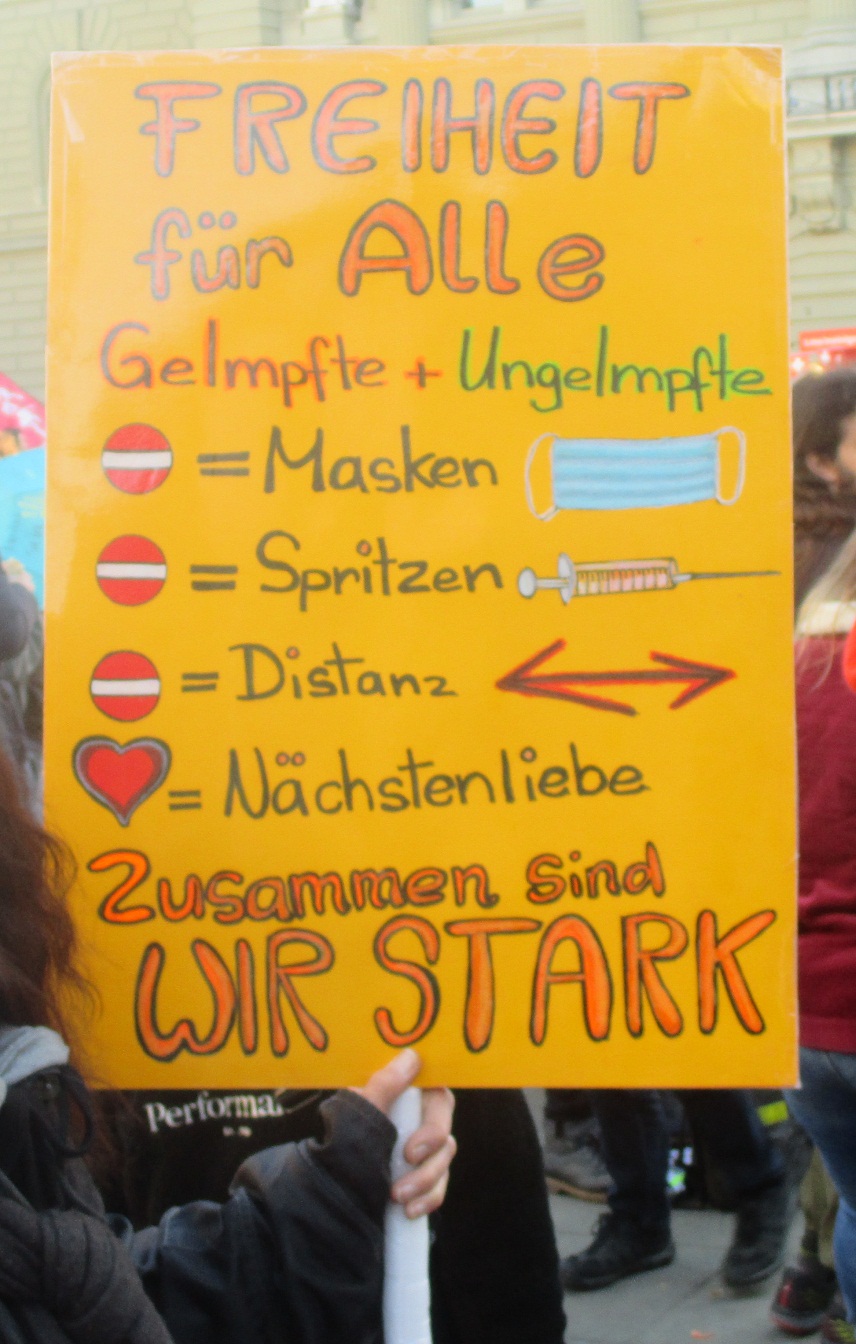 FREIHEIT
für Alle
GeImpfte + UngeImpfte
= Masken
= Spritzen
= Distanz
= Nächstenliebe
Zusammen sind
WIR STARK